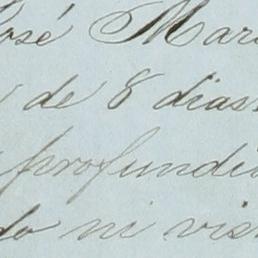 José Mar
de 8 dias
profundi
do ni vis